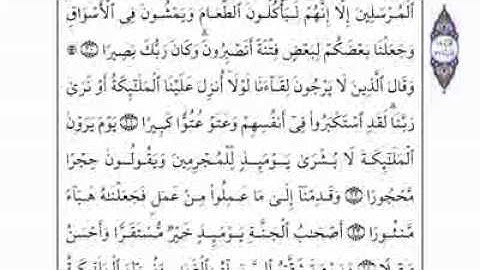 ٱلْمُرْسَلِينَ إِلَّآ إِنَّهُمْ لَيَأْكُلُونَ ٱلطَّعَامَ وَيَمْشُونَ فِى ٱلْأَسْوَاقِ
وَجَعَلْنَا بَعْضَكُمْ لِبَعْضٍ فِتْنَةً أَتَصْبِرُونَ ۗ وَكَانَ رَبُّكَ بَصِيرًا ۝٢٠
وَقَالَ ٱلَّذِينَ لَا يَرْجُونَ لِقَآءَنَا لَوْلَآ أُنزِلَ عَلَيْنَا ٱلْمَلَٰٓئِكَةُ أَوْ نَرَىٰ
رَبَّنَا ۗ لَقَدِ ٱسْتَكْبَرُوا۟ فِىٓ أَنفُسِهِمْ وَعَتَوْ عُتُوًّا كَبِيرًا ۝٢١ يَوْمَ يَرَوْنَ
ٱلْمَلَٰٓئِكَةَ لَا بُشْرَىٰ يَوْمَئِذٍ لِّلْمُجْرِمِينَ وَيَقُولُونَ حِجْرًا
مَّحْجُورًا ۝٢٢ وَقَدِمْنَآ إِلَىٰ مَا عَمِلُوا۟ مِنْ عَمَلٍ فَجَعَلْنَٰهُ هَبَآءً
مَّنثُورًا ۝٢٣ أَصْحَٰبُ ٱلْجَنَّةِ يَوْمَئِذٍ خَيْرٌ مُّسْتَقَرًّا وَأَحْسَنُ
مَقِيلًا ۝٢٤ وَيَوْمَ تَشَقَّقُ ٱلسَّمَآءُ بِٱلْغَمَٰمِ وَنُزِّلَ ٱلْمَلَٰٓئِكَةُ